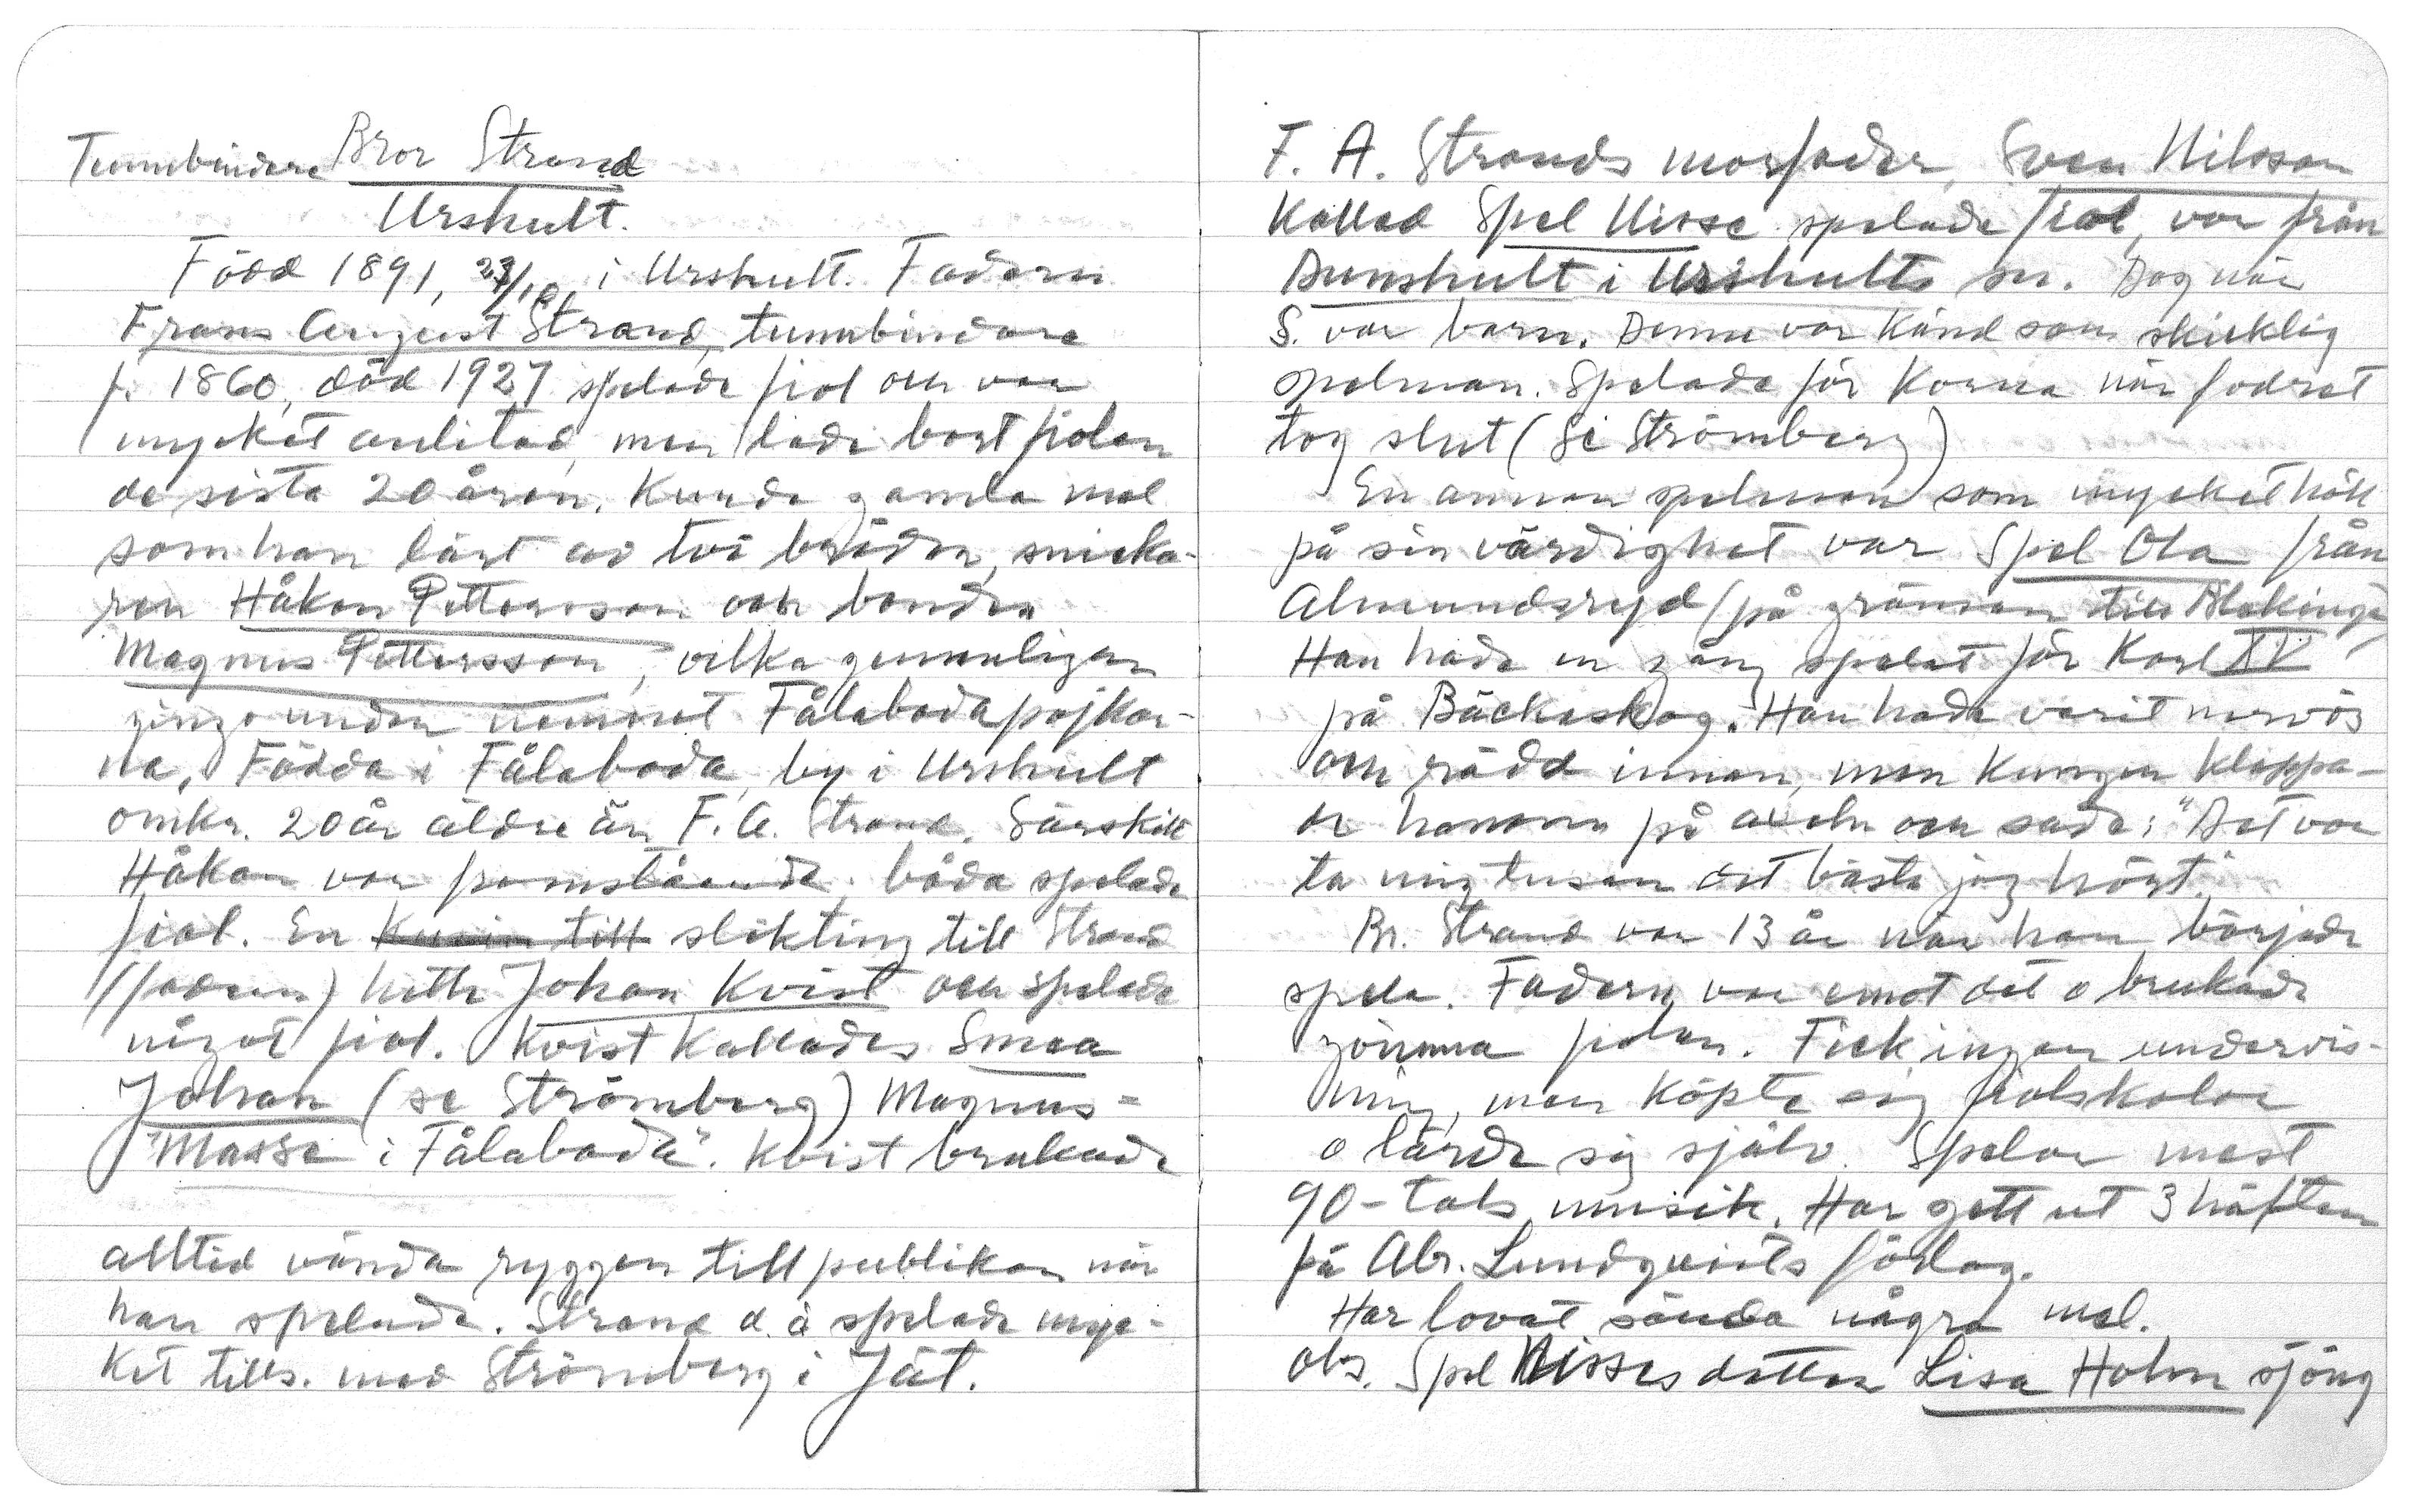 Tunnbindare Bror Strand
Urshult.
Född 1891, 23/10, i Urshult. Fadern
Frans August Strand, tunnbindare
f. 1860, död 1927 spelade fiol och var
mycket anlitad, men lade bort fiolen
de sista 20 åren. Kunde gamla mel
som han lärt av två bröder, snicka-
ren Håkan Pettersson och bonden
Magnus Pettersson, vilka gemenligen
gingo under namnet Fålabodapojkar-
na. Födda i Fålaboda, by i Urshult
omkr. 20 år äldre än F. A. Strand. Särskilt
Håkan var framstående. båda spelade
fiol. En kusin till släkting till Strand
(fadern) hette Johan Kvist och spelade
något fiol. Kvist kallades Smea
Johan (se Strömberg) Magnus =
"Masse i Fålaboda". Kvist brukade
alltid vända ryggen till publiken när
han spelade. Strand d. ä spelade myc-
ket tills. med Strömberg i Jät.
F. A. Strands morfader, Sven Nilsson
kallad Spel Nisse spelade fiol, var från
Dunshult i Urshults sn. Dog när
S. var barn. Denne var känd som skicklig
spelman. Spelade för korna när fodret
tog slut (Se Strömberg)
En annan spelman som mycket höll
på sin värdighet var Spel Ola från
Almundsryd (på gränsen till Blekinge)
Han hade en gång spelat för Karl XV
på Bäckaskog. Han hade varit nervös
och rädd innan, men kungen klappa-
de honom på axeln och sade: "Det var
ta mig tusan det bästa jag hört."
Br. Strand var 13 år när han började
spela. Fadern var emot det o brukade
gömma fiolen. Fick ingen undervis-
ning, men köpte sig fiolskolor
o lärde sig själv. Spelar mest
90-tals musik. Har gett ut 3 häften
på Abr. Lundquists förlag.
Har lovat sända några mel.
Obs. Spel Nisses dotter Lisa Holm sjöng